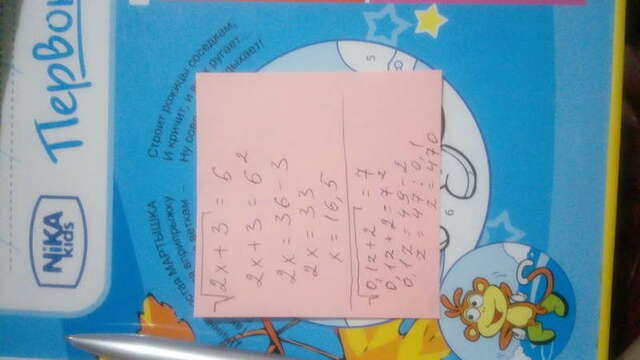 NiKA
kids
Перво
МАРТЫШКА
вприпрыжку
веткам -
Строит рожицы соседкам,
И кричит, и
ругает.
Ну
√2x + 3 = 6
2x + 3 = 6²
2x = 36 - 3
2x = 33
x = 16,5
√0,1z + 2 = 7
0,1z + 2 = 7²
0,1z = 49 - 2
z = 47 : 0,1
z = 470
5
6